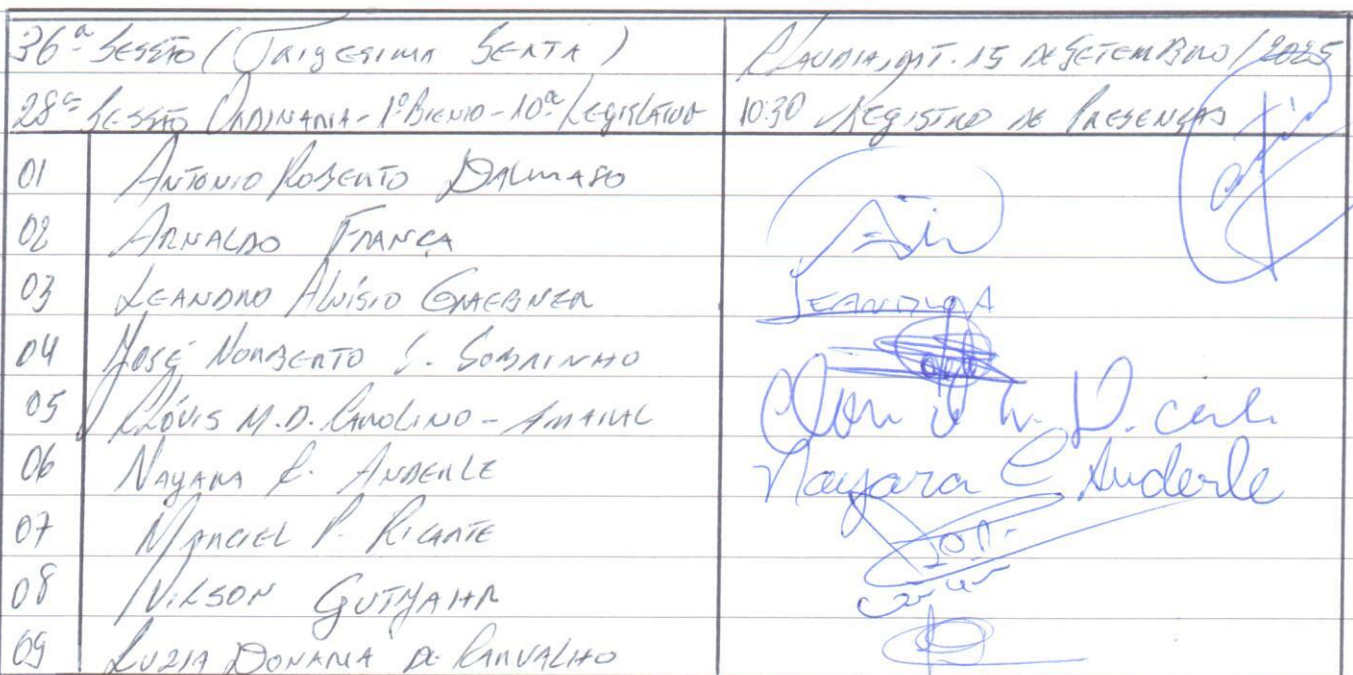 36ª Sessão (Trigesima Sexta)
Claudia, MT. 15 de Setembro/2025
28ª Sessão Ordinaria - 1º Bienio - 10ª Legislatura
10:30 Registro de Presenças
01 Antonio Roberto Dalmaso
02 Arnaldo França
03 Leandro Aluísio Graebner
04 José Norberto S. Sobrinho
05 Clóvis M.D. Carolino - Amaral
06 Nayara C. Anderle
Nayara C Anderle
07 Marciel P. Ricarte
08 Nilson Gutjahr
09 Luzia Donaria de Carvalho